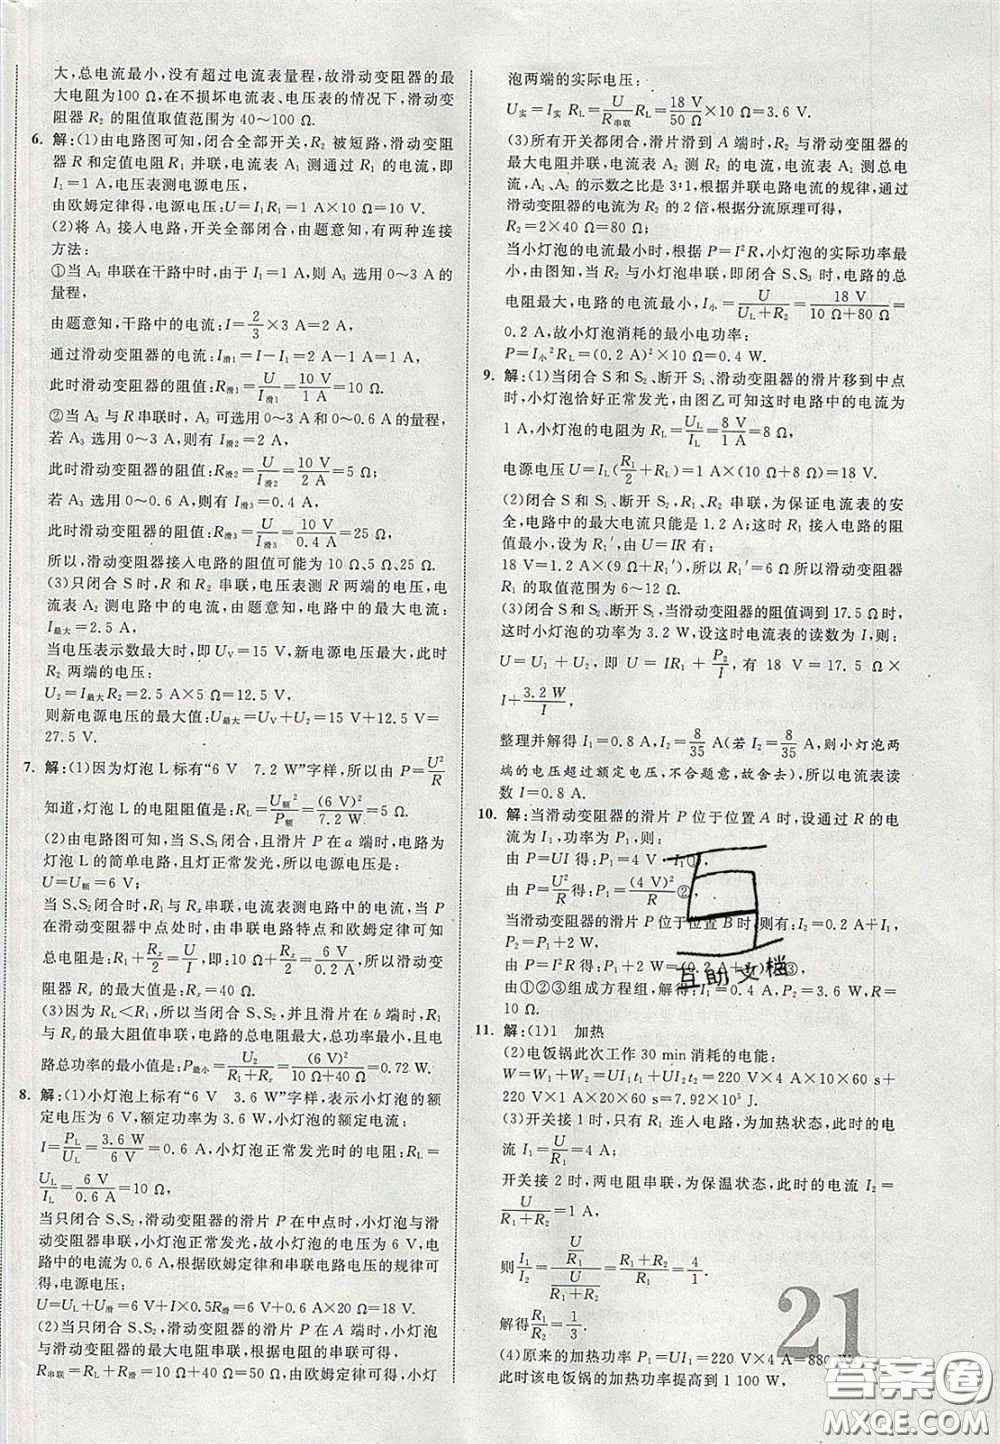 大,总电流最小,没有超过电流表量程,故滑动变阻器的最
大电阻为100 Ω.在不损坏电流表、电压表的情况下,滑动
变阻器 R₂ 的阻值取值范围为 40～100 Ω.
6. 解:(1)由电路图可知,闭合全部开关,R₂ 被短路,滑动变
阻器 R 和定值电阻 R₁ 并联,电流表 A₁ 测通过 R₁ 的电流,即
I₁=1 A,电压表测电源电压,
由欧姆定律得,电源电压:U=I₁R₁=1 A×10 Ω=10 V.
(2)将 A₃ 接入电路,开关全部闭合,由题意知,有两种连接
方法:
①当 A₃ 串联在干路中时,由于 I₁=1 A,则 A₃ 选用 0～3 A 的
量程,
由题意知,干路中的电流:I=2/3×3 A=2 A,
通过滑动变阻器的电流:I滑1=I－I₁=2 A－1 A=1 A,
此时滑动变阻器的阻值:R滑1=U/I滑1=10 V/1 A=10 Ω.
②当 A₃ 与 R 串联时,A₃ 可选用 0～3 A 和 0～0.6 A 的量程,
若 A₃ 选用 0～3 A,则有 I滑2=2 A,
此时滑动变阻器的阻值:R滑2=U/I滑2=10 V/2 A=5 Ω;
若 A₃ 选用 0～0.6 A,则有 I滑3=0.4 A,
此时滑动变阻器的阻值:R滑3=U/I滑3=10 V/0.4 A=25 Ω.
所以,滑动变阻器接入电路的阻值可能为 10 Ω、5 Ω、25 Ω.
(3)只闭合 S 时,R 和 R₂ 串联,电压表测 R 两端的电压,电
流表 A₂ 测电路中的电流,由题意知,电路中的最大电流:
I最大=2.5 A,
当电压表示数最大时,即 Uᵥ=15 V,新电源电压最大,此时
R₂ 两端的电压:
U₂=I最大R₂=2.5 A×5 Ω=12.5 V,
则新电源电压的最大值:U最大=Uᵥ+U₂=15 V+12.5 V=
27.5 V.
7. 解:(1)因为灯泡 L 标有“6 V 7.2 W”字样,所以由 P=U²/R
知道,灯泡 L 的电阻阻值是:RL=U额²/P额=(6 V)²/7.2 W=5 Ω.
(2)由电路图可知,当 S、S₁ 闭合,且滑片 P 在 a 端时,电路为
灯泡 L 的简单电路,且灯正常发光,所以电源电压是:
U=U额=6 V;
当 S、S₂ 闭合时,R₁ 与 Rₓ 串联,电流表测电路中的电流,当 P
在滑动变阻器中点处时,由串联电路特点和欧姆定律可知
总电阻是:R₁+Rₓ/2=U/I,即:10 Ω+Rₓ/2=6 V/0.2 A,所以,滑动变
阻器 Rₓ 的最大值是:Rₓ=40 Ω.
(3)因为 RL<R₁,所以当闭合 S、S₂,并且滑片在 b 端时,R₁
与 Rₓ 的最大阻值串联,电路的总电阻最大,总功率最小,且电
路总功率的最小值是:P最小=U²/(R₁+Rₓ)=(6 V)²/(10 Ω+40 Ω)=0.72 W.
8. 解:(1)小灯泡上标有“6 V 3.6 W”字样,表示小灯泡的额
定电压为 6 V,额定功率为 3.6 W,小灯泡的额定电流:
I=PL/UL=3.6 W/6 V=0.6 A,小灯泡正常发光时的电阻:RL=
UL/IL=6 V/0.6 A=10 Ω,
当只闭合 S、S₂,滑动变阻器的滑片 P 在中点时,小灯泡与滑
动变阻器串联,小灯泡正常发光,故小灯泡的电压为 6 V,
电路中的电流为 0.6 A,根据欧姆定律和串联电路的规律可
得,电源电压:
U=UL+U滑=6 V+I×0.5R滑=6 V+0.6 A×20 Ω=18 V.
(2)当只闭合 S、S₂,滑动变阻器的滑片 P 在 a 端时,小灯
泡与滑动变阻器的最大电阻串联,根据电阻的串联,
R串联=RL+R滑=10 Ω+40 Ω=50 Ω,由欧姆定律,小灯
泡两端的实际电压:
U实=I实 RL=U/R串联 RL=18 V/50 Ω×10 Ω=3.6 V.
(3)所有开关都闭合,滑片滑到最右端时,R₂ 与滑动变阻器的
最大电阻并联,电流表 A 测 R₂ 的电流,电流表 A₁ 测总电
流,A₁、A 的示数之比是 3∶1,根据并联电路电流的规律,通过
滑动变阻器的电流为 R₂ 的 2 倍,根据分流原理可得,
R₂=2R滑=2×40 Ω=80 Ω,
当小灯泡的电流最小时,根据 P=I²R,小灯泡的实际功率最
小,由图知,当 R₂ 与小灯泡串联,即闭合 S、S₃ 时,电路的总
电阻最大,电路的电流最小,I小=U/(UL+R₂)=18 V/(10 Ω+80 Ω)=
0.2 A,故小灯泡消耗的最小电功率:
P=I小²RL=(0.2 A)²×10 Ω=0.4 W.
9. 解:(1)当闭合 S 和 S₂、断开 S₁、滑动变阻器的滑片移到中点
时,小灯泡恰好正常发光,由图乙可知这时电路中的电流为
1 A,小灯泡的电阻为 RL=UL/IL=8 V/1 A=8 Ω,
电源电压U=IL(R₁/2+RL)=1 A×(10 Ω+8 Ω)=18 V.
(2)闭合 S 和 S₁、断开 S₂,R₁、R₂ 串联,为保证电流表的安
全,电路中的最大电流只能是 1.2 A;这时 R₁ 接入电路的阻
值最小,设为 R₁′,由 U=IR 有:
18 V=1.2 A×(9 Ω+R₁′),解得:R₁′=6 Ω,所以变阻器
R₁ 的取值范围为 6～12 Ω.
(3)闭合 S 和 S₂、断开 S₁,当滑动变阻器的阻值调到 17.5 Ω时,
这时小灯泡的功率为 3.2 W,设这时电流表的读数为 I,则:
U=U₁+U₂,即 U=IR₁+P₂/I,有 18 V=17.5 Ω×
I+3.2 W/I,
整理并解得 I₁=0.8 A,I₂=8/35 A(若 I₂=8/35 A,则小灯泡两
端的电压超过额定电压,不合题意,故舍去),所以电流表读
数 I=0.8 A.
10. 解:当滑动变阻器的滑片 P 位于位置 A 时,设通过 R 的电
流为 I₁,功率为 P₁,则:
由 P=UI 得:P₁=4 V·I₁①,
由 P=U²/R得:P₁=(4 V)²/R②,
当滑动变阻器的滑片 P 位于位置 B 时,则有:I₂=0.2 A+I₁,
P₂=P₁+2 W,
由 P=I²R 得:P₁+2 W=(0.2 A+I₁)²R③,
由①②③组成方程组,解得:I₁=0.4 A,P₁=1.6 W,R=
10 Ω.
11. 解:(1)1 加热
(2)电饭锅此次工作 30 min 消耗的电能:
W=W₁+W₂=UI₁t₁+UI₂t₂=220 V×4 A×10×60 s+
220 V×1 A×20×60 s=7.92×10⁵ J.
(3)开关接 1 时,只有 R₁ 连入电路,为加热状态,此时的电
流 I₁=U/R₁=4 A;
开关接 2 时,两电阻串联,为保温状态,此时的电流 I₂=
U/(R₁+R₂)=1 A,
则I₁/I₂=(U/R₁)/(U/(R₁+R₂))=(R₁+R₂)/R₁=4/1.
解得R₁/R₂=1/3.
(4)原来的加热功率 P₁=UI₁=220 V×4 A=880 W,
此时该电饭锅的加热功率提高到 1 100 W,
21
互助文档
答案圈
MXQE.COM